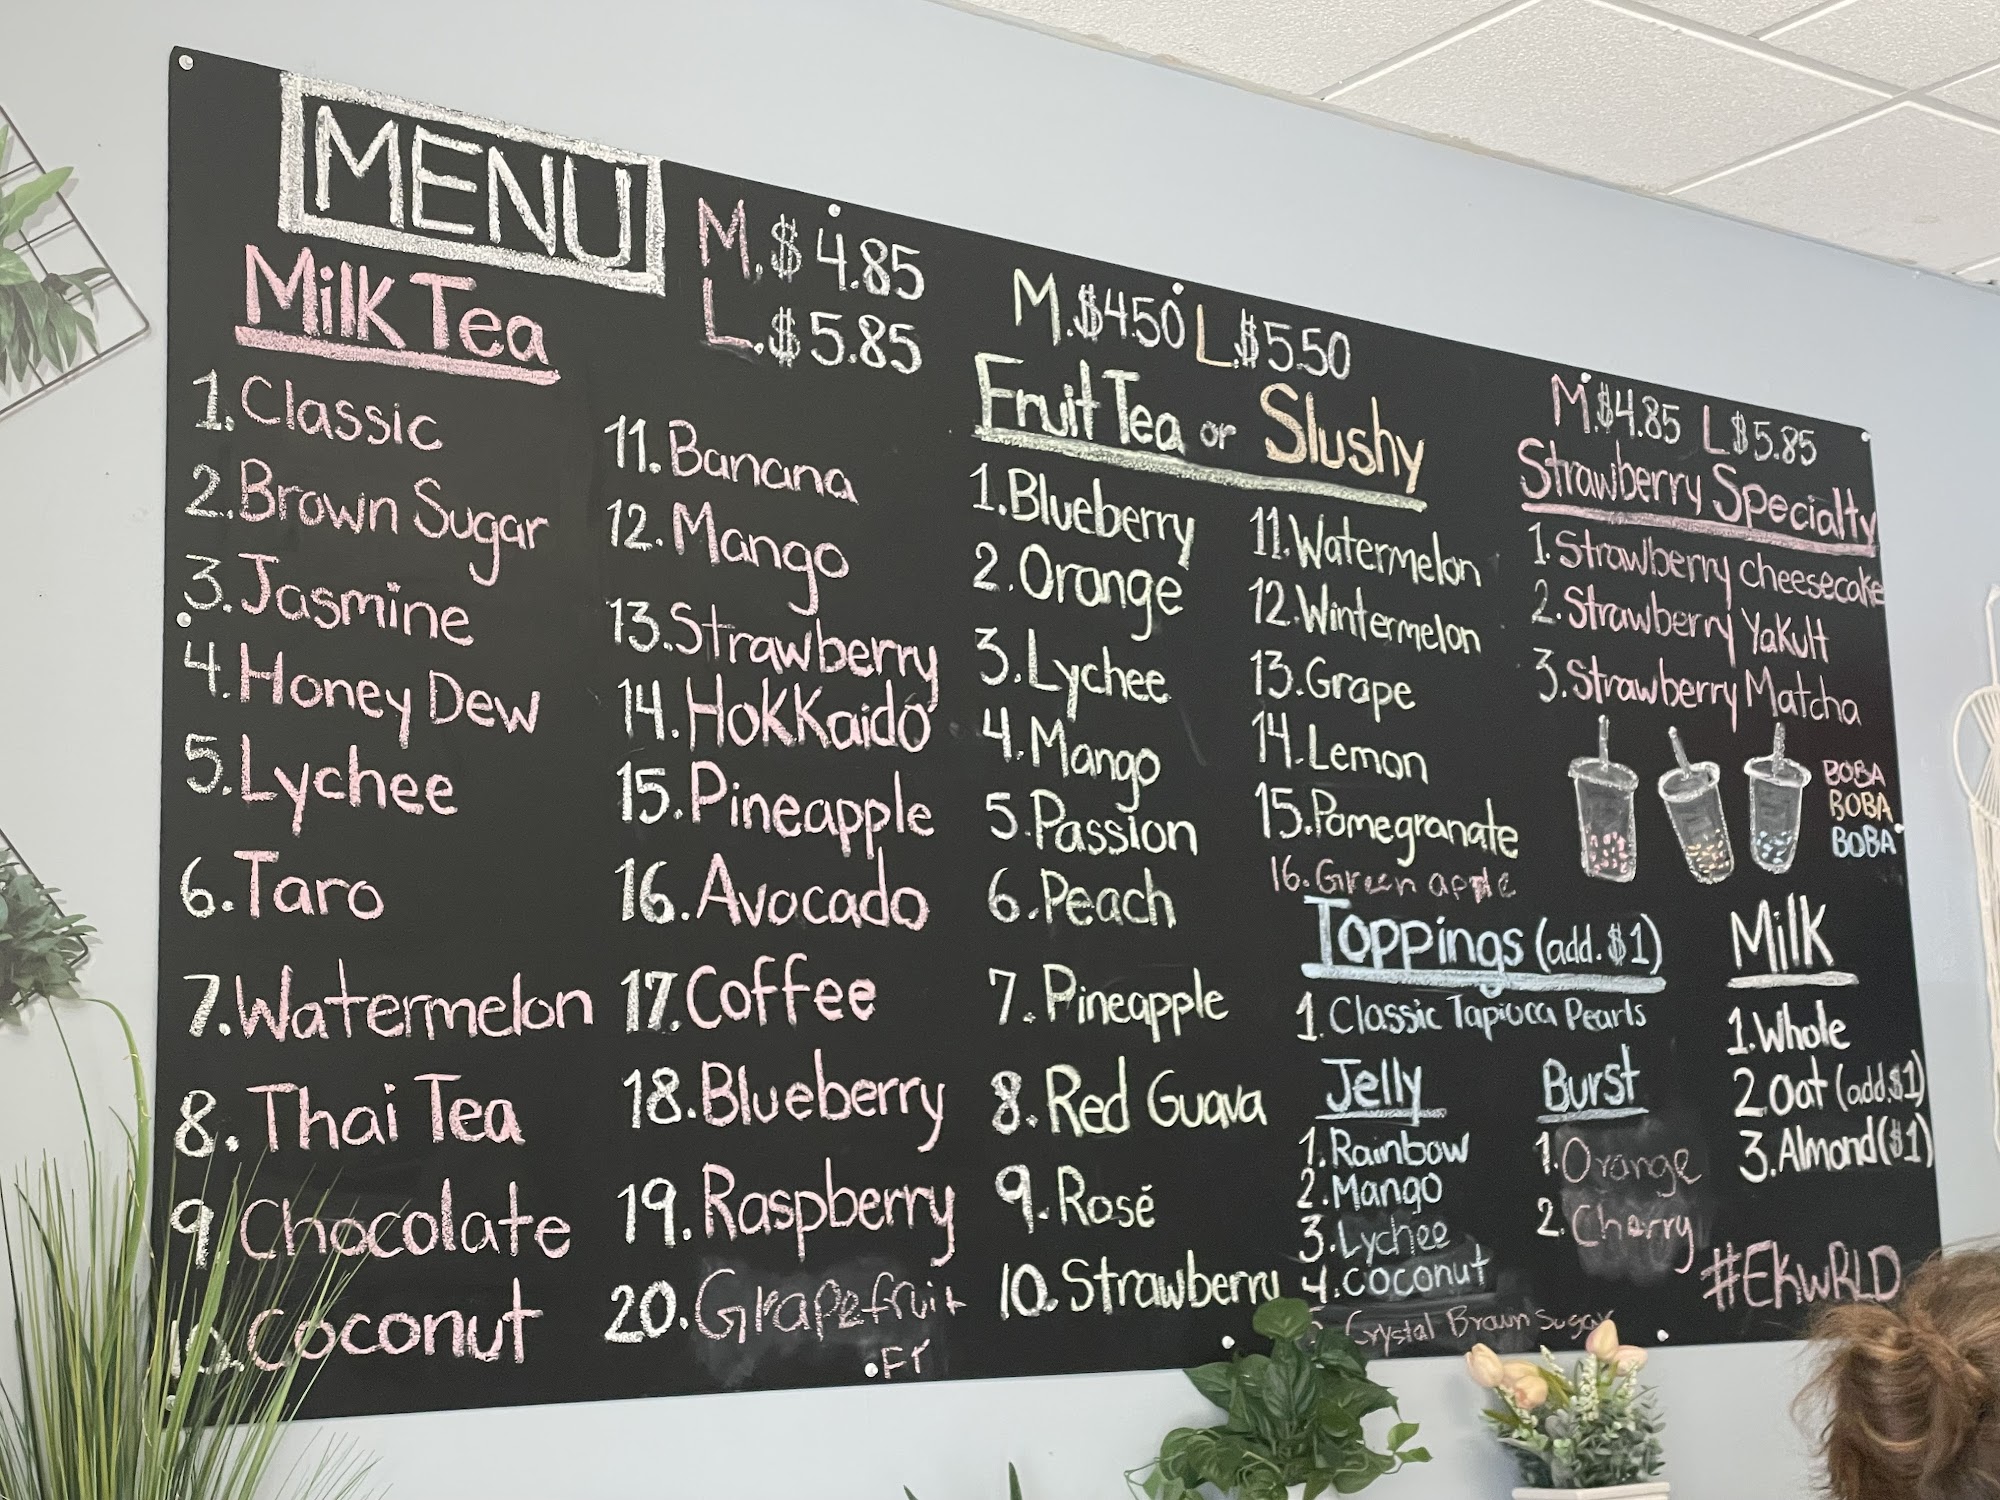 MENU
Milk Tea
M.$4.85
L.$5.85
1.Classic
2.Brown Sugar
3.Jasmine
4.Honey Dew
5.Lychee
6.Taro
7.Watermelon
8.Thai Tea
9.Chocolate
10.Coconut
11.Banana
12.Mango
13.Strawberry
14.Hokkaido
15.Pineapple
16.Avocado
17.Coffee
18.Blueberry
19.Raspberry
20.Grapefruit
Fr
M.$4.50 L.$5.50
Fruit Tea or Slushy
1.Blueberry
2.Orange
3.Lychee
4.Mango
5.Passion
6.Peach
7.Pineapple
8.Red Guava
9.Rosé
10.Strawberry
11.Watermelon
12.Wintermelon
13.Grape
14.Lemon
15.Pomegranate
16.Green apple
M.$4.85 L$5.85
Strawberry Specialty
1.Strawberry cheesecake
2.Strawberry Yakult
3.Strawberry Matcha
BOBA
BOBA
BOBA
Toppings (add.$1)
1.Classic Tapioca Pearls
Jelly
1.Rainbow
2.Mango
3.Lychee
4.Coconut
5. Crystal Brown Sugar
Burst
1.Orange
2.Cherry
Milk
1.Whole
2.Oat (add.$1)
3.Almond($1)
#EKWRLD